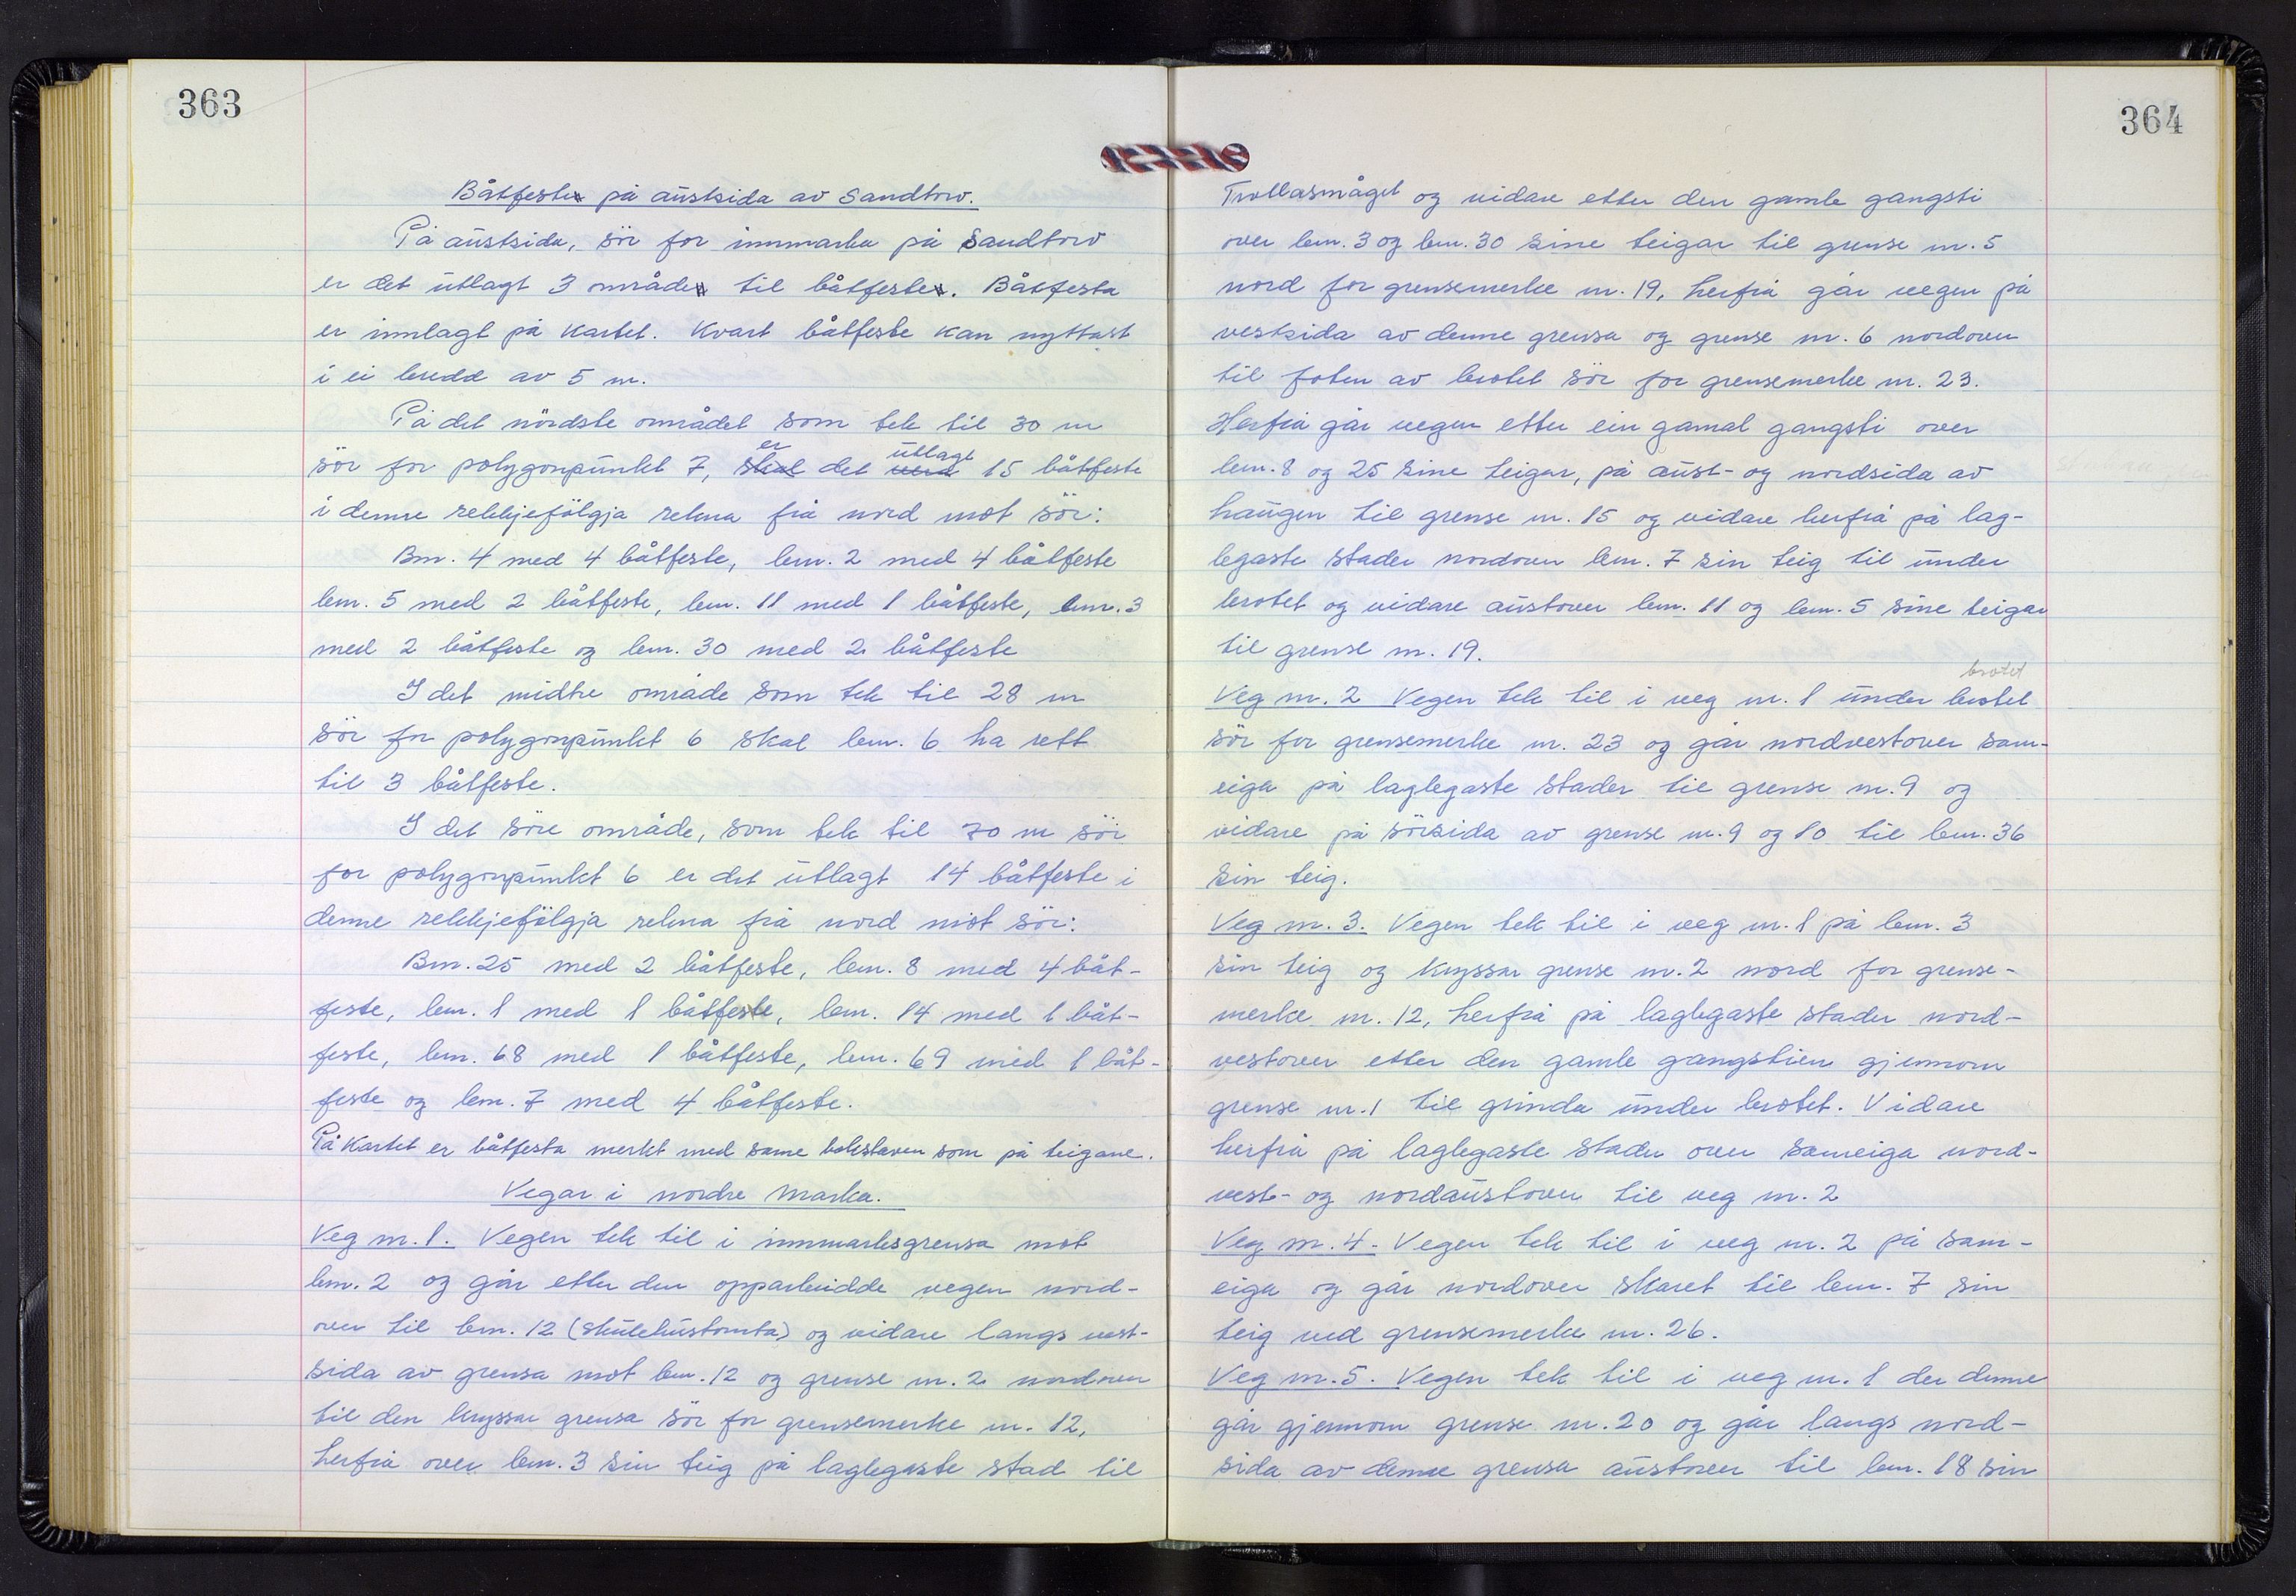 363
Båtfeste på austsida av Sandtrov.
På austsida, sör for innmarka på Sandtrov
er det utlagt 3 område til båtfeste. Båtfesta
er innlagt på kartet. Kvart båtfeste kan nyttast
i ei bredd av 5 m.
På det nördste området som tek til 30 m
sör for polygonpunkt 7, skal er det vera utlagt 15 båtfeste
i denne rekkjefölgja rekna frå nord mot sör:
Bnr. 4 med 4 båtfeste, bnr. 2 med 4 båtfeste
bnr. 5 med 2 båtfeste, bnr. 11 med 1 båtfeste, bnr. 3
med 2 båtfeste og bnr. 30 med 2 båtfeste
I det midtre område som tek til 28 m
sör for polygonpunkt 6 skal bnr. 6 ha rett
til 3 båtfeste.
I det söre område, som tek til 70 m sör
for polygonpunkt 6 er det utlagt 14 båtfeste i
denne rekkjefölgja rekna frå nord mot sör:
Bnr. 25 med 2 båtfeste, bnr. 8 med 4 båt-
feste, bnr. 1 med 1 båtfeste, bnr. 14 med 1 båt-
feste, bnr. 68 med 1 båtfeste, bnr. 69 med 1 båt-
feste og bnr. 7 med 4 båtfeste.
På kartet er båtfesta merkt med same bokstaven som på teigane.
Vegar i nordre marka.
Veg nr. 1. Vegen tek til i innmarksgrensa mot
bnr. 2 og går etter den opparbeidde vegen nord-
over til bnr. 12 (skulehustomta) og vidare langs vest-
sida av grensa mot bnr. 12 og grense nr. 2 nordover
til den kryssar grensa sör for grensemerke nr. 12,
herfrå over bnr. 3 sin teig på laglegaste stad til
364
Trollasmåget og vidare etter den gamle gangsti
over bnr. 3 og bnr. 30 sine teigar til grense nr. 5
nord for grensemerke nr. 19, herfrå går vegen på
vestsida av denne grensa og grense nr. 6 nordover
til foten av brotet sör for grensemerke nr. 23.
Herfrå går vegen etter ein gamal gangsti over
bnr. 8 og 25 sine teigar, på aust- og nordsida av
haugen til grense nr. 15 og vidare herfrå på lag-
legaste stader nordover bnr. 7 sin teig til under
brotet og vidare austover bnr. 11 og bnr. 5 sine teigar
til grense nr. 19.
brotet
Veg nr. 2 Vegen tek til i veg nr. 1 under brotet
sör for grensemerke nr. 23 og går nordvestover sam-
eiga på laglegaste stader til grense nr. 9 og
vidare på sörsida av grense nr. 9 og 10 til bnr. 36
sin teig.
Veg nr. 3. Vegen tek til i veg nr. 1 på bnr. 3
sin teig og kryssar grense nr. 2 nord for grense-
merke nr. 12, herfrå på laglegaste stader nord-
vestover etter den gamle gangstien gjennom
grense nr. 1 til grinda under brotet. Vidare
herfrå på laglegaste stader over sameiga nord-
vest- og nordaustover til veg nr. 2
Veg nr. 4. Vegen tek til i veg nr. 2 på sam-
eiga og går nordover skaret til bnr. 7 sin
teig ved grensemerke nr. 26.
Veg nr. 5. Vegen tek til i veg nr. 1 der denne
går gjennom grense nr. 20 og går langs nord-
sida av denne grensa austover til bnr. 18 sin